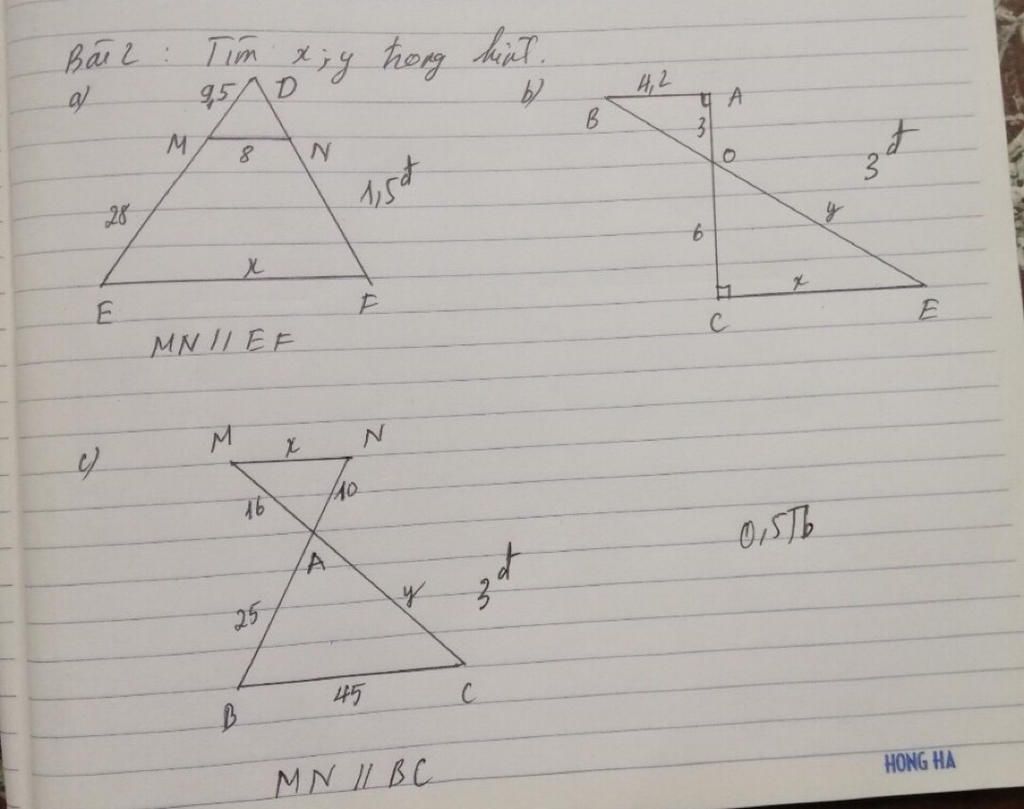 Bài 2 : Tìm x ; y trong hình.
a)
9,5
D
M
8
N
28
1,5đ
x
E
F
MN // EF
b)
4,2
A
B
3
O
3đ
y
6
x
C
E
c)
M
x
N
16
10
A
25
y
3đ
B
45
C
MN // BC
0,5Tb
HONG HA